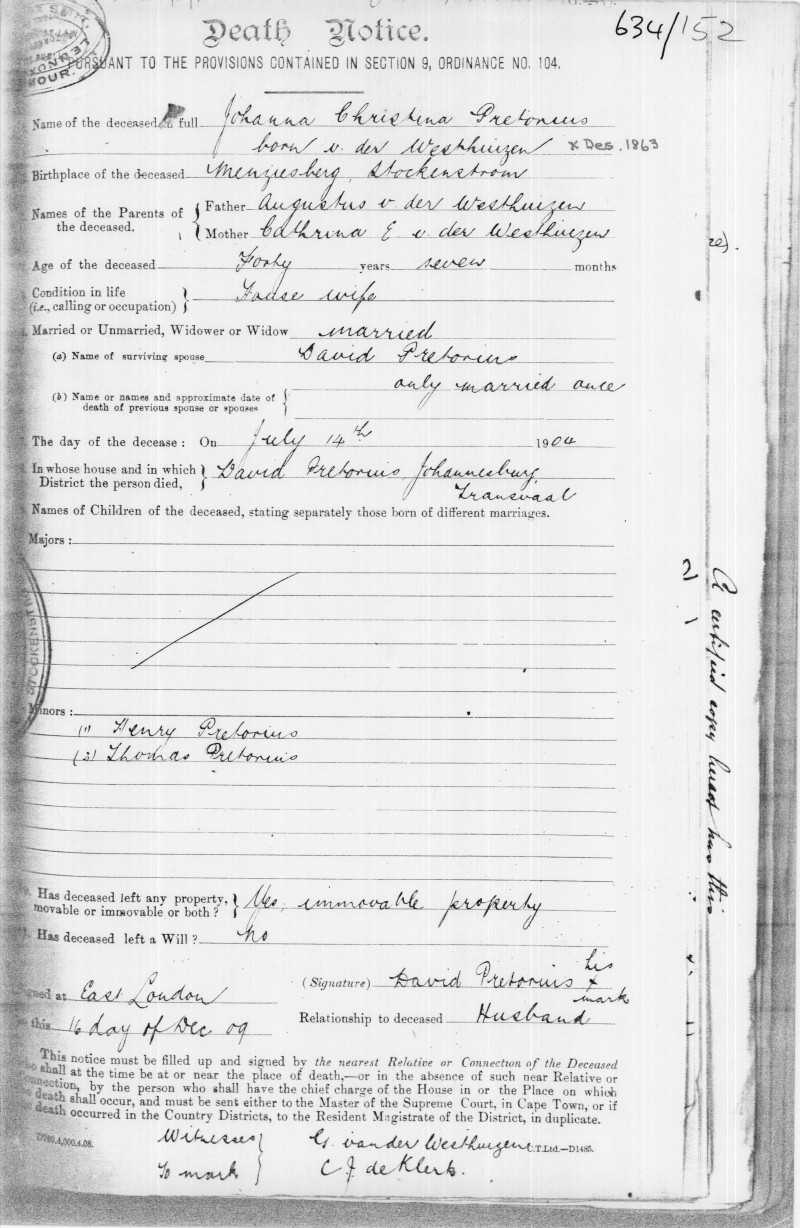 Death Notice.
634/152
PURSUANT TO THE PROVISIONS CONTAINED IN SECTION 9, ORDINANCE NO. 104.
Name of the deceased in full Johanna Christina Pretorius
born v. der Westhuizen x Des. 1863
Birthplace of the deceased Menziesberg, Stockenstrom
Names of the Parents of the deceased. { Father Augustus v. der Westhuizen
Mother Cathrina E v. der Westhuizen
Age of the deceased Forty years seven months
Condition in life (i.e., calling or occupation) } House wife
Married or Unmarried, Widower or Widow married
(a) Name of surviving spouse David Pretorius
only married once
(b) Name or names and approximate date of death of previous spouse or spouses {
The day of the decease: On July 14th 1904
In whose house and in which District the person died, } David Pretorius, Johannesburg,
Transvaal
Names of Children of the deceased, stating separately those born of different marriages.
Majors:
STOCKENSTR
Minors:
(1) Henry Pretorius
(2) Thomas Pretorius
2)
A certified copy hereof has this
Has deceased left any property, movable or immovable or both? } Yes, immovable property
Has deceased left a Will? no
(Signature) David Pretorius his x mark
Signed at East London
Relationship to deceased Husband
this 16 day of Dec 09
This notice must be filled up and signed by the nearest Relative or Connection of the Deceased
who shall at the time be at or near the place of death,—or in the absence of such near Relative or
Connection, by the person who shall have the chief charge of the House in or the Place on which
the death shall occur, and must be sent either to the Master of the Supreme Court, in Cape Town, or if
the death occurred in the Country Districts, to the Resident Magistrate of the District, in duplicate.
D780.4,000.4.08.
C.T.Ltd.—D1485.
Witnesses } G. van der Westhuizen
to mark } C J. de Klerk.